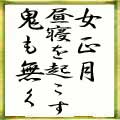 女正月
昼寝を起こす
鬼も無く